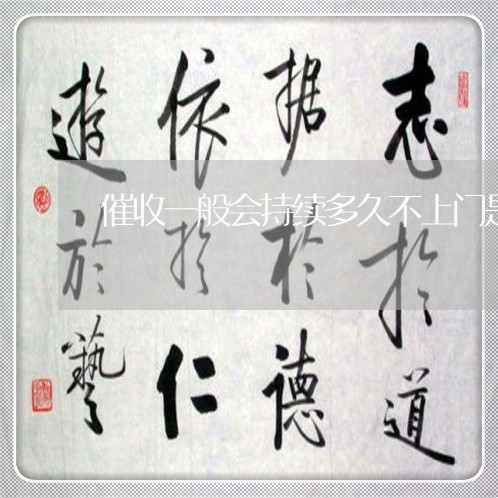 志扵道
据於德
依扵仁
遊於藝
催收一般会持续多久不上门